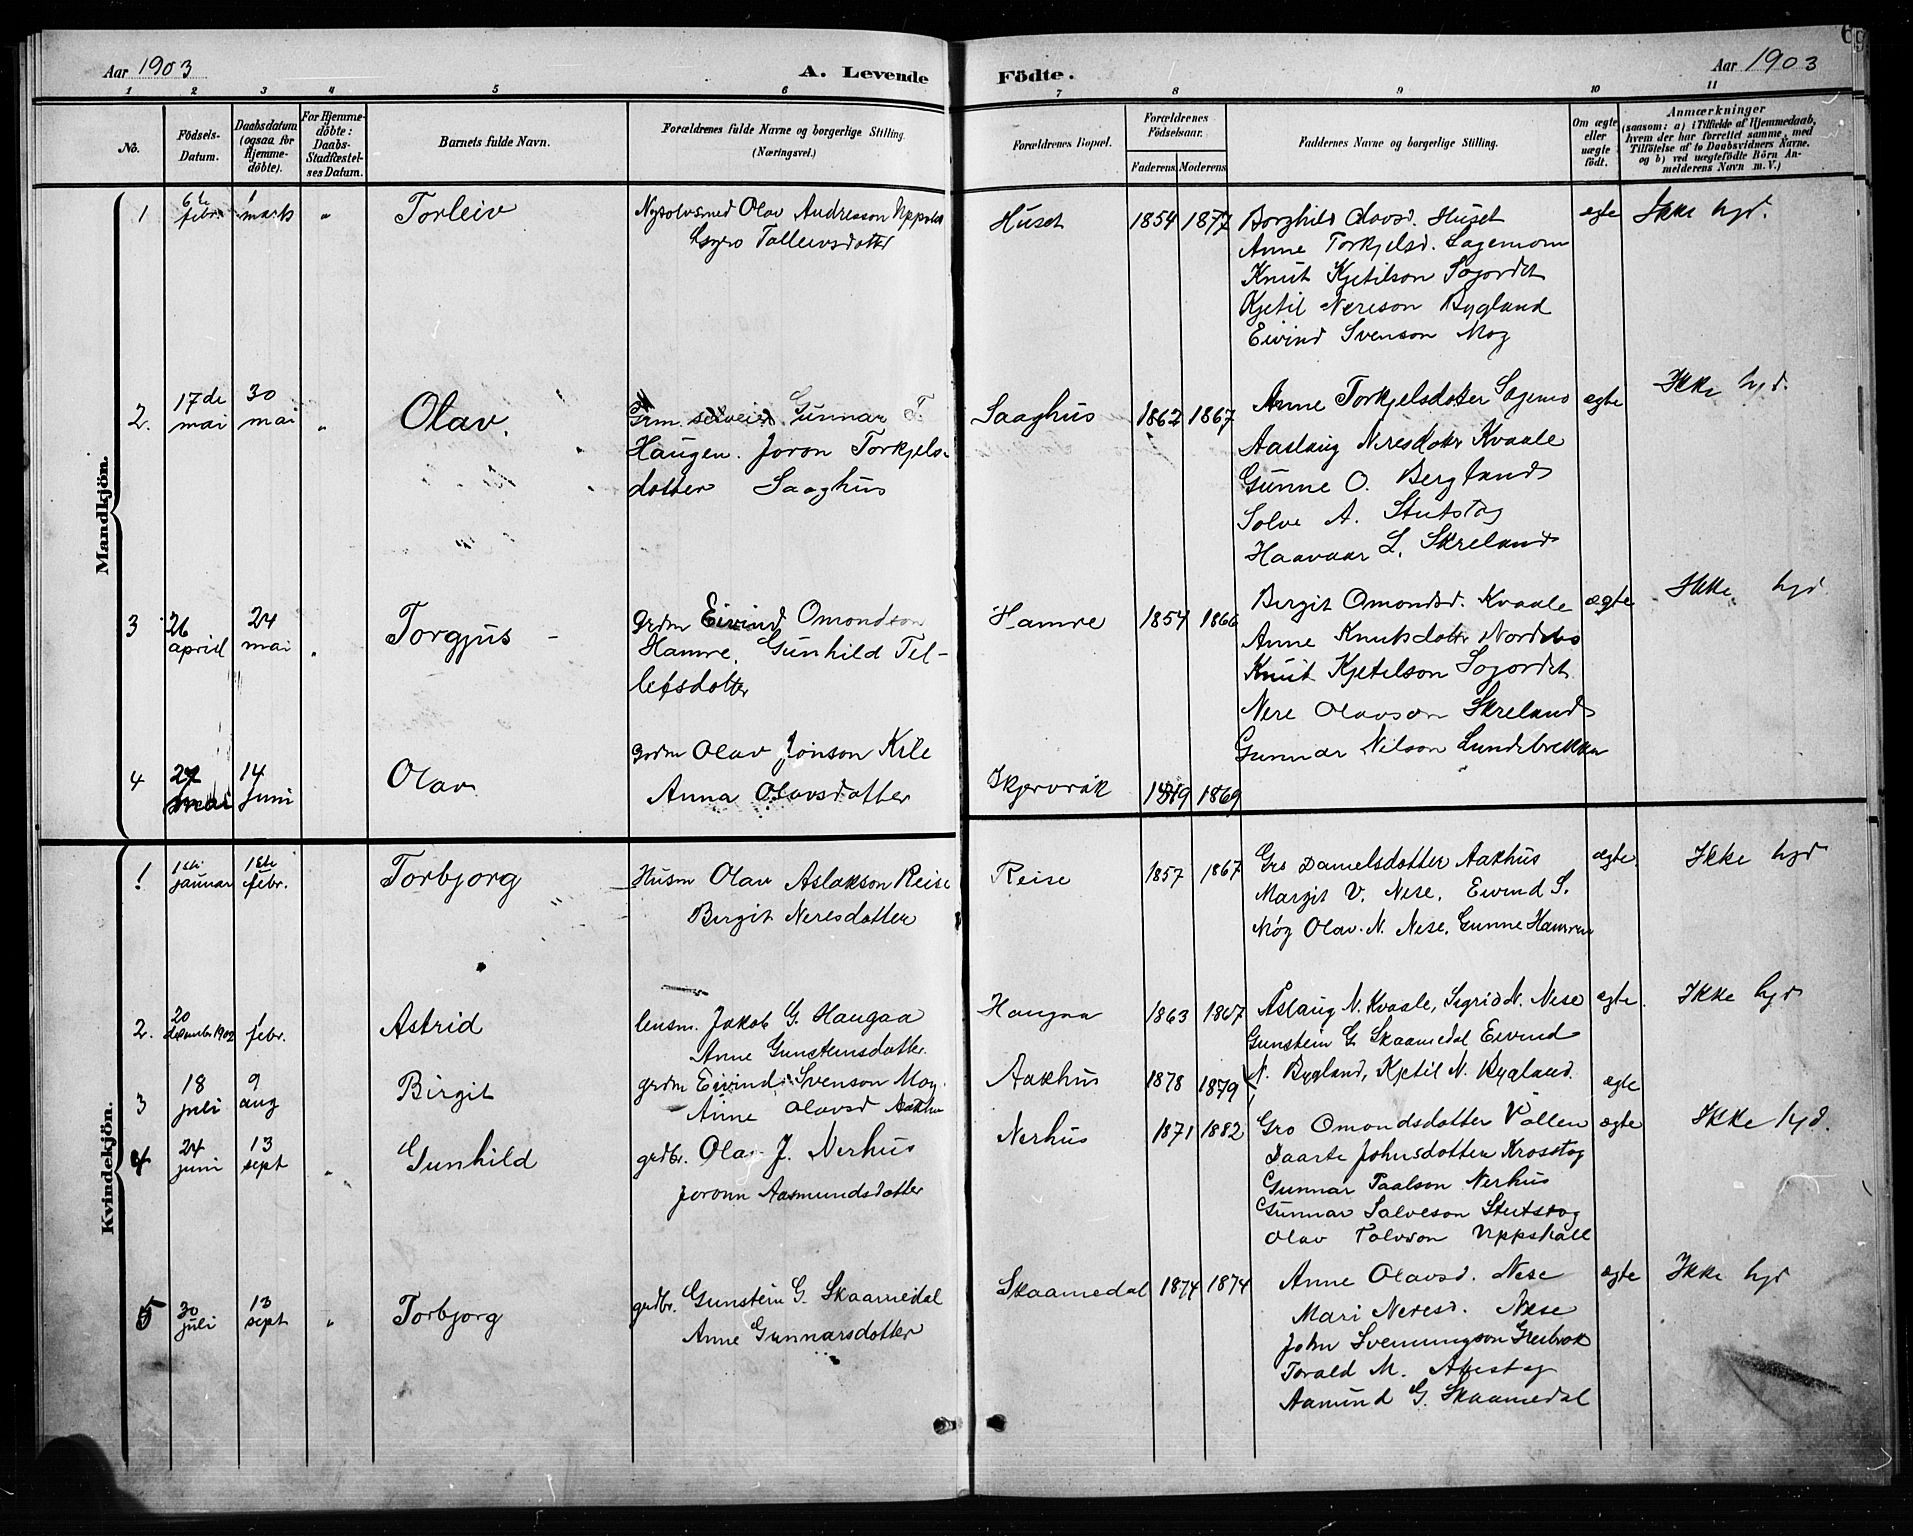 69
Aar 1903
A. Levende Födte.
Aar 1903
1 2 3 4 5 6 7 8 9 10 11
No.
Födsels-
Datum.
Daabsdatum
(ogsaa for
Hjemme-
döbte).
For Hjemme-
döbte:
Daabs-
Stadfæstel-
ses Datum.
Barnets fulde Navn.
Forældrenes fulde Navne og borgerlige Stilling.
(Næringsvei.)
Forældrenes Bopæl.
Forældrenes
Födselsaar.
Faderens. Moderens.
Faddernes Navne og borgerlige Stilling.
Om ægte
eller
uægte
födt.
Anmærkninger
(saasom: a) i Tilfælde af Hjemmedaab,
hvem der har forrettet samme, med
Tilföielse af to Daabsvidners Navne.
og b) ved uægtefödte Börn An-
melderens Navn m. V.)
Mandkjön.
1
6te
febr.
1
marts
"
Torleiv
Nysølvsmed Olav Andresson
Tolleivsdotter
Huset
1854 1877
Borghild Olavsd. Huset
Anne Torkjelsd. Sagemom
Knut Kjetilson Søgordet
Kjetil Nereson Bygland
Eivind Svenson Mog
ægte
Ikke hjd.
2.
17de
mai
30
mai
"
Olav.
Grm. Gunnar T.
Haugen. Joron Torkjels-
dotter Saaghus
Saaghus
1862 1867
Anne Torkjelsdotter Sagemo
Aaslaug Neresdotter Kvaale
Gunne O. Bergland
Solve A. Stutstog
Haavaar L. Skreland
ægte
Ikke hjd.
3
26
april
24
mai
"
Torgjus
Grdm Eivind Omondson
Hamre. Gunhild Tel-
lefsdotter
Hamre
1854 1866
Birgit Omondsd. Kvaale
Anne Knutsdotter
Knut Kjetilson Søgordet
Nere Olavson Skreland
Gunnar Nilson Lundebrekka
ægte
Ikke hjd
4
27
mai
14
juni
Olav
Grdm Olav Jonson Kile
Anna Olavsdotter
Skjervråk
1869
Kvindekjön.
1
1ste
januar
1ste
febr.
"
Torbjorg
Husm Olav Aslakson Reise
Birgit Neresdotter
Reise
1857 1867
Gro Danielsdotter Aakhus
Margit V. Nese. Eivind S.
Møg Olav N. Nese. Gunne Hamren
ægte
Ikke hjd
2.
20
desember 1902
1
febr.
Astrid
lensm. Jakob G. Haugaa
Anne Gunsteinsdotter.
Haugaa
1863 1867
Åslaug N. Kvaale, Sigrid N. Nese
Gunstein G Skaamedal Eivind
N. Bygland, Kjetil N. Bygland.
ægte
Ikke hjd
3
18
juli
9
aug
Birgit
grdm Eivind Svenson Mog.
Anne Olavsd Aakhus
Aakhus
1878 1879
ægte
4
24
juni
13
sept
"
Gunhild
grdbr. Olav J. Nerhus
Joronn Aasmundsdotter
Nerhus
1871 1882
Gro Omondsdotter Vollen
Daarte Johnsdotter Krosstog
Gunnar Taalson Nerhus
Gunnar Salveson Stutstog
Olav Tolvson Uppstall
ægte
Ikke hjd.
5
30
juli
13
sept
"
Torbjorg
grdbr. Gunstein G. Skaamedal
Anne Gunnarsdotter
Skaamedal
1874 1874
Anne Olavsd. Nese
Mari Neresd. Nese
John Svenningson Greibrok
Torald M. Austog
Aamund G. Skaamedal
ægte
Ikke hjd